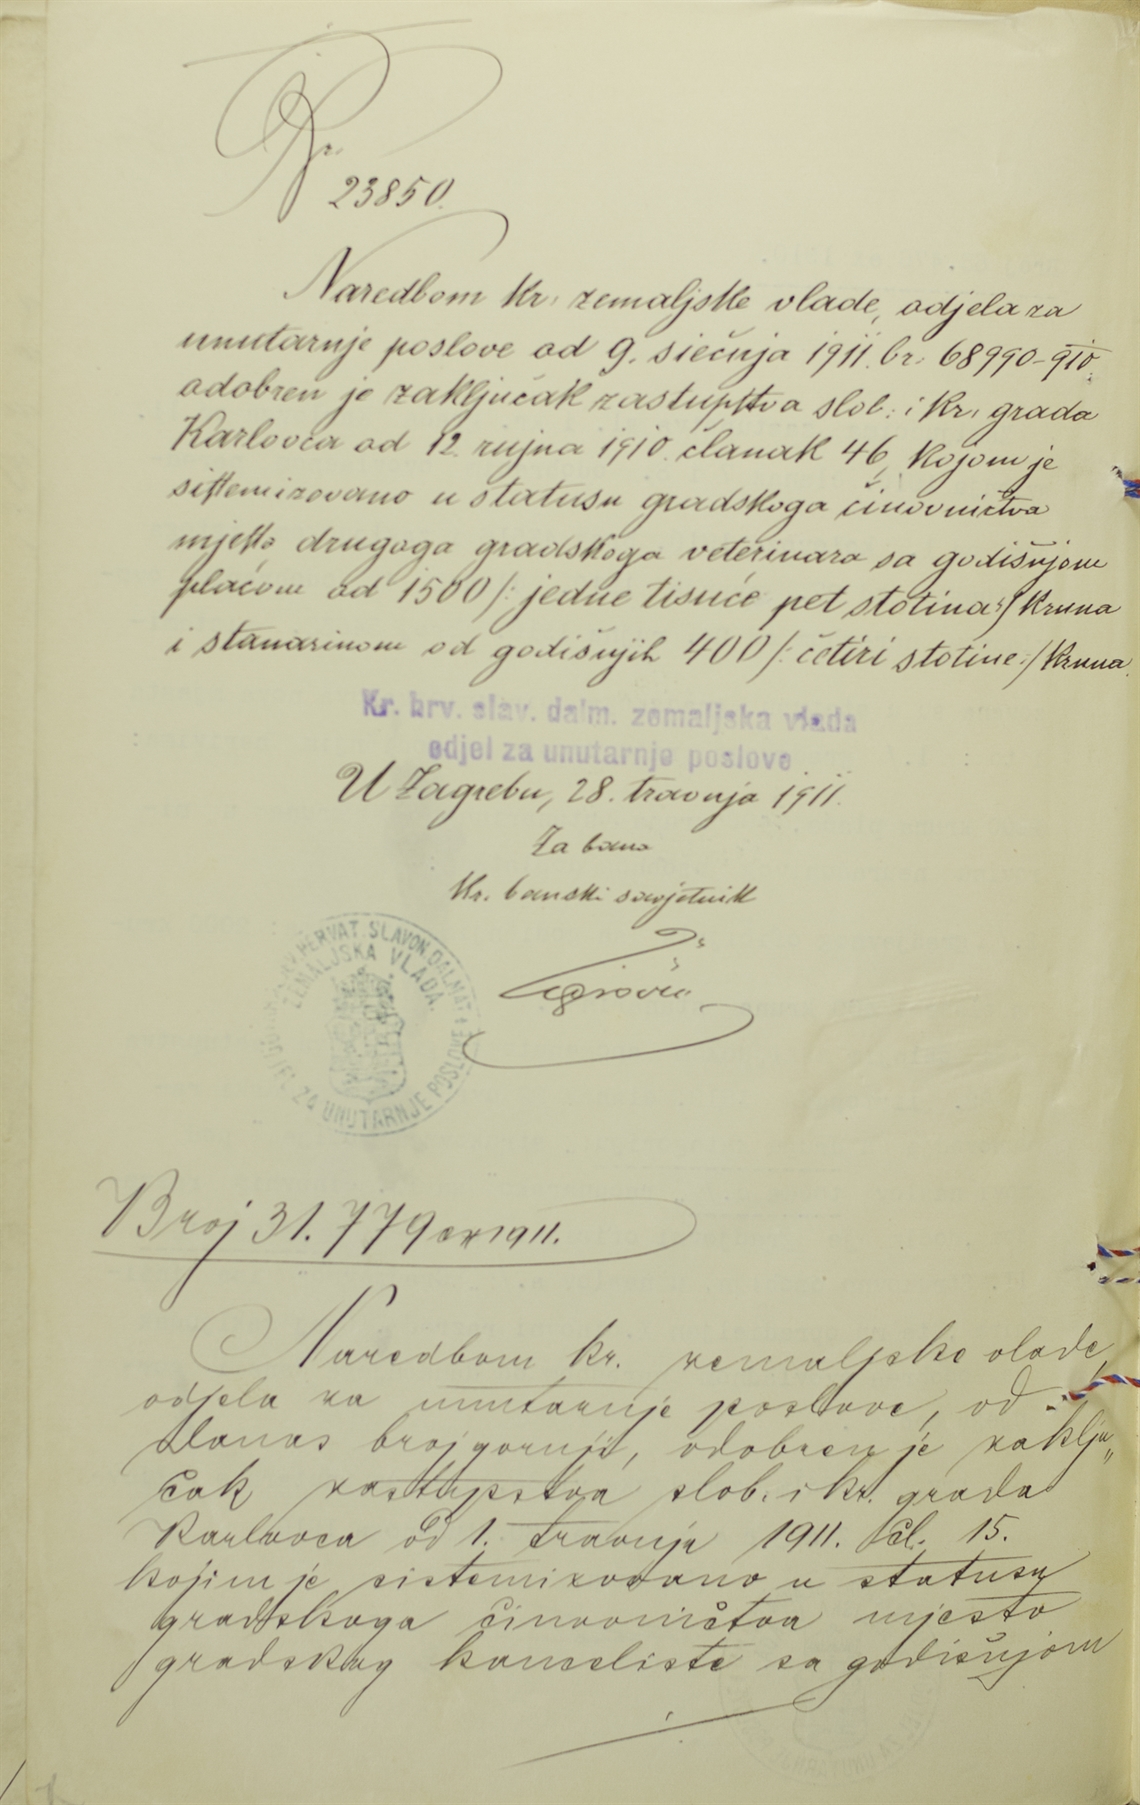 Br.
23850.
Naredbom kr. zemaljske vlade, odjela za
unutarnje poslove od 9. siečnja 1911. br. 68990-910.
odobren je zaključak zastupstva slob. i kr. grada
Karlovca od 12. rujna 1910. članak 46, kojom je
sistemizovano u statusu gradskoga činovničtva
mjesto drugoga gradskoga veterinara sa godišnjom
plaćom od 1500 /: jedne tisuće pet stotina :/ kruna
i stanarinom od godišnjih 400 /: četiri stotine :/ kruna.
Kr. hrv. slav. dalm. zemaljska vlada
odjel za unutarnje poslove
U Zagrebu, 28. travnja 1911.
Za bana
Kr. banski savjetnik
HERVAT. SLAVON. DALMAT.
ZEMALJSKA VLADA.
ODJEL ZA UNUTARNJE POSLOVE
Broj 31.779 ex 1911.
Naredbom kr. zemaljske vlade,
odjela za unutarnje poslove, od
danas broj gornji, odobren je zaklju„
čak zastupstva slob. i kr. grada
Karlovca od 1. travnja 1911. čl. 15.
kojim je sistemizovano u statusu
gradskoga činovničtva mjesto
gradskog kanceliste sa godišnjom